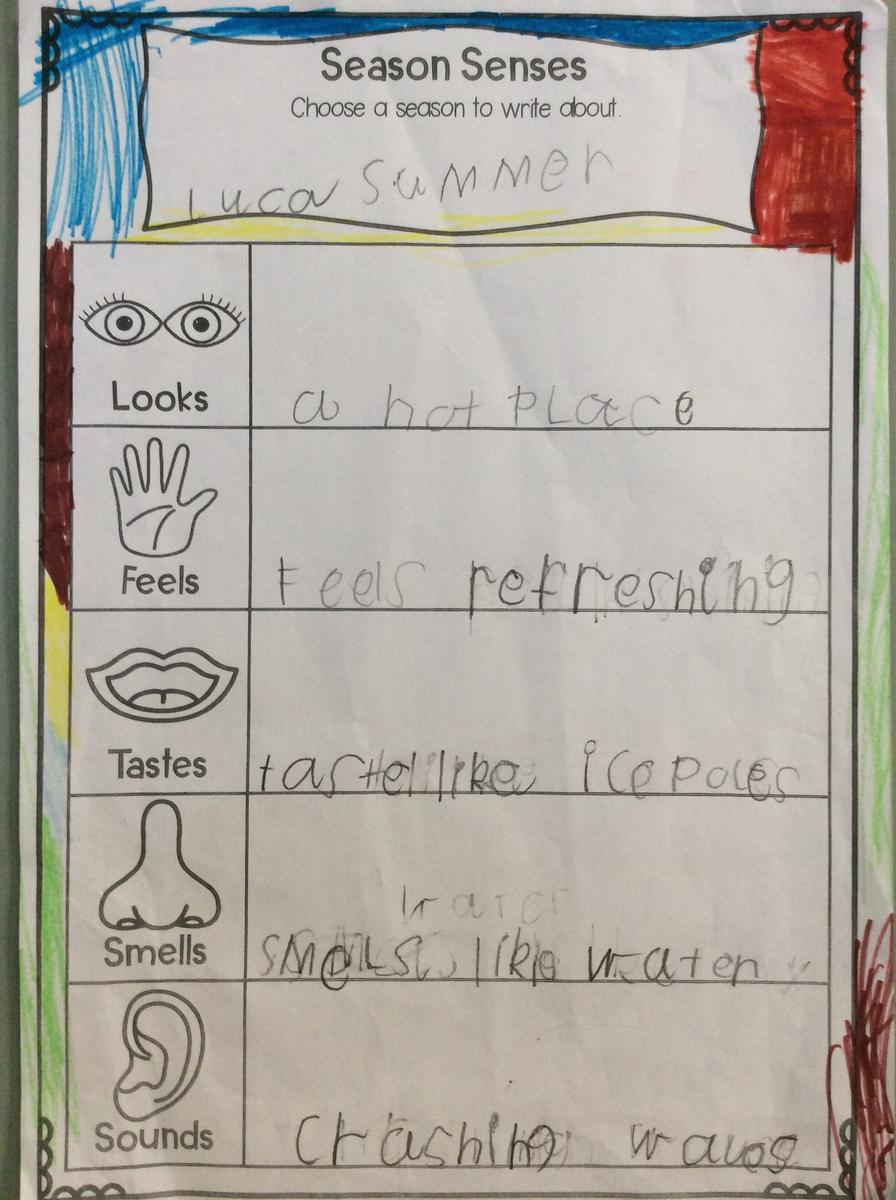 Season Senses
Choose a season to write about.
Luca Summer
Looks
a hot place
Feels
Feels refreshing
Tastes
taste like ice poles
water
Smells
smells like water
Sounds
Crashing waves